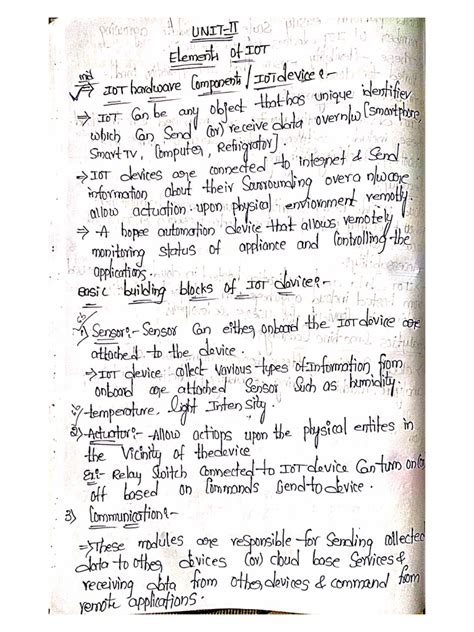 UNIT-II
Elements of IOT
IOT hardware Components / IOT device :-
⇒ IOT Can be any object that has unique identifier
which Can Send (or) receive data over n/w [smartphone,
Smart TV, Computer, Refrigrator].
⇒ IOT devices are connected to internet & Send
information about their Surrounding over a n/w are
allow actuation upon physical enviornment remotly.
⇒ A home automation device that allows remotely
monitoring status of appliance and Controlling the
applications.
basic building blocks of IOT device :-
1) Sensor :- Sensor Can either onboard the IOT device are
attached to the device.
⇒ IOT device collect various types of Information from
onboard are attached Sensor Such as humidity.
temperature, light Intensity.
2) Actuator :- Allow actions upon the physical entites in
the Vicinity of thedevice
Ex:- Relay Switch Connected to IOT device Can turn on (or)
off based on Commands Send to device.
3) Communication :-
⇒ These modules are responsible for Sending collected
data to other devices (or) cloud base Services &
receiving data from other devices & command from
remote applications.